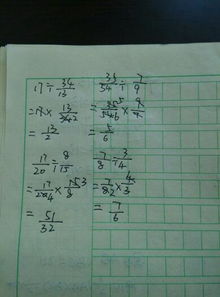 17÷34/13
=17×13/34 2
=13/2
35/54÷7/9
=35 5/54 6×9/7
=5/6
17/20÷8/15
=17/20 4×15 3/8
=51/32
7/8÷3/4
=7/8 2×4/3
=7/6